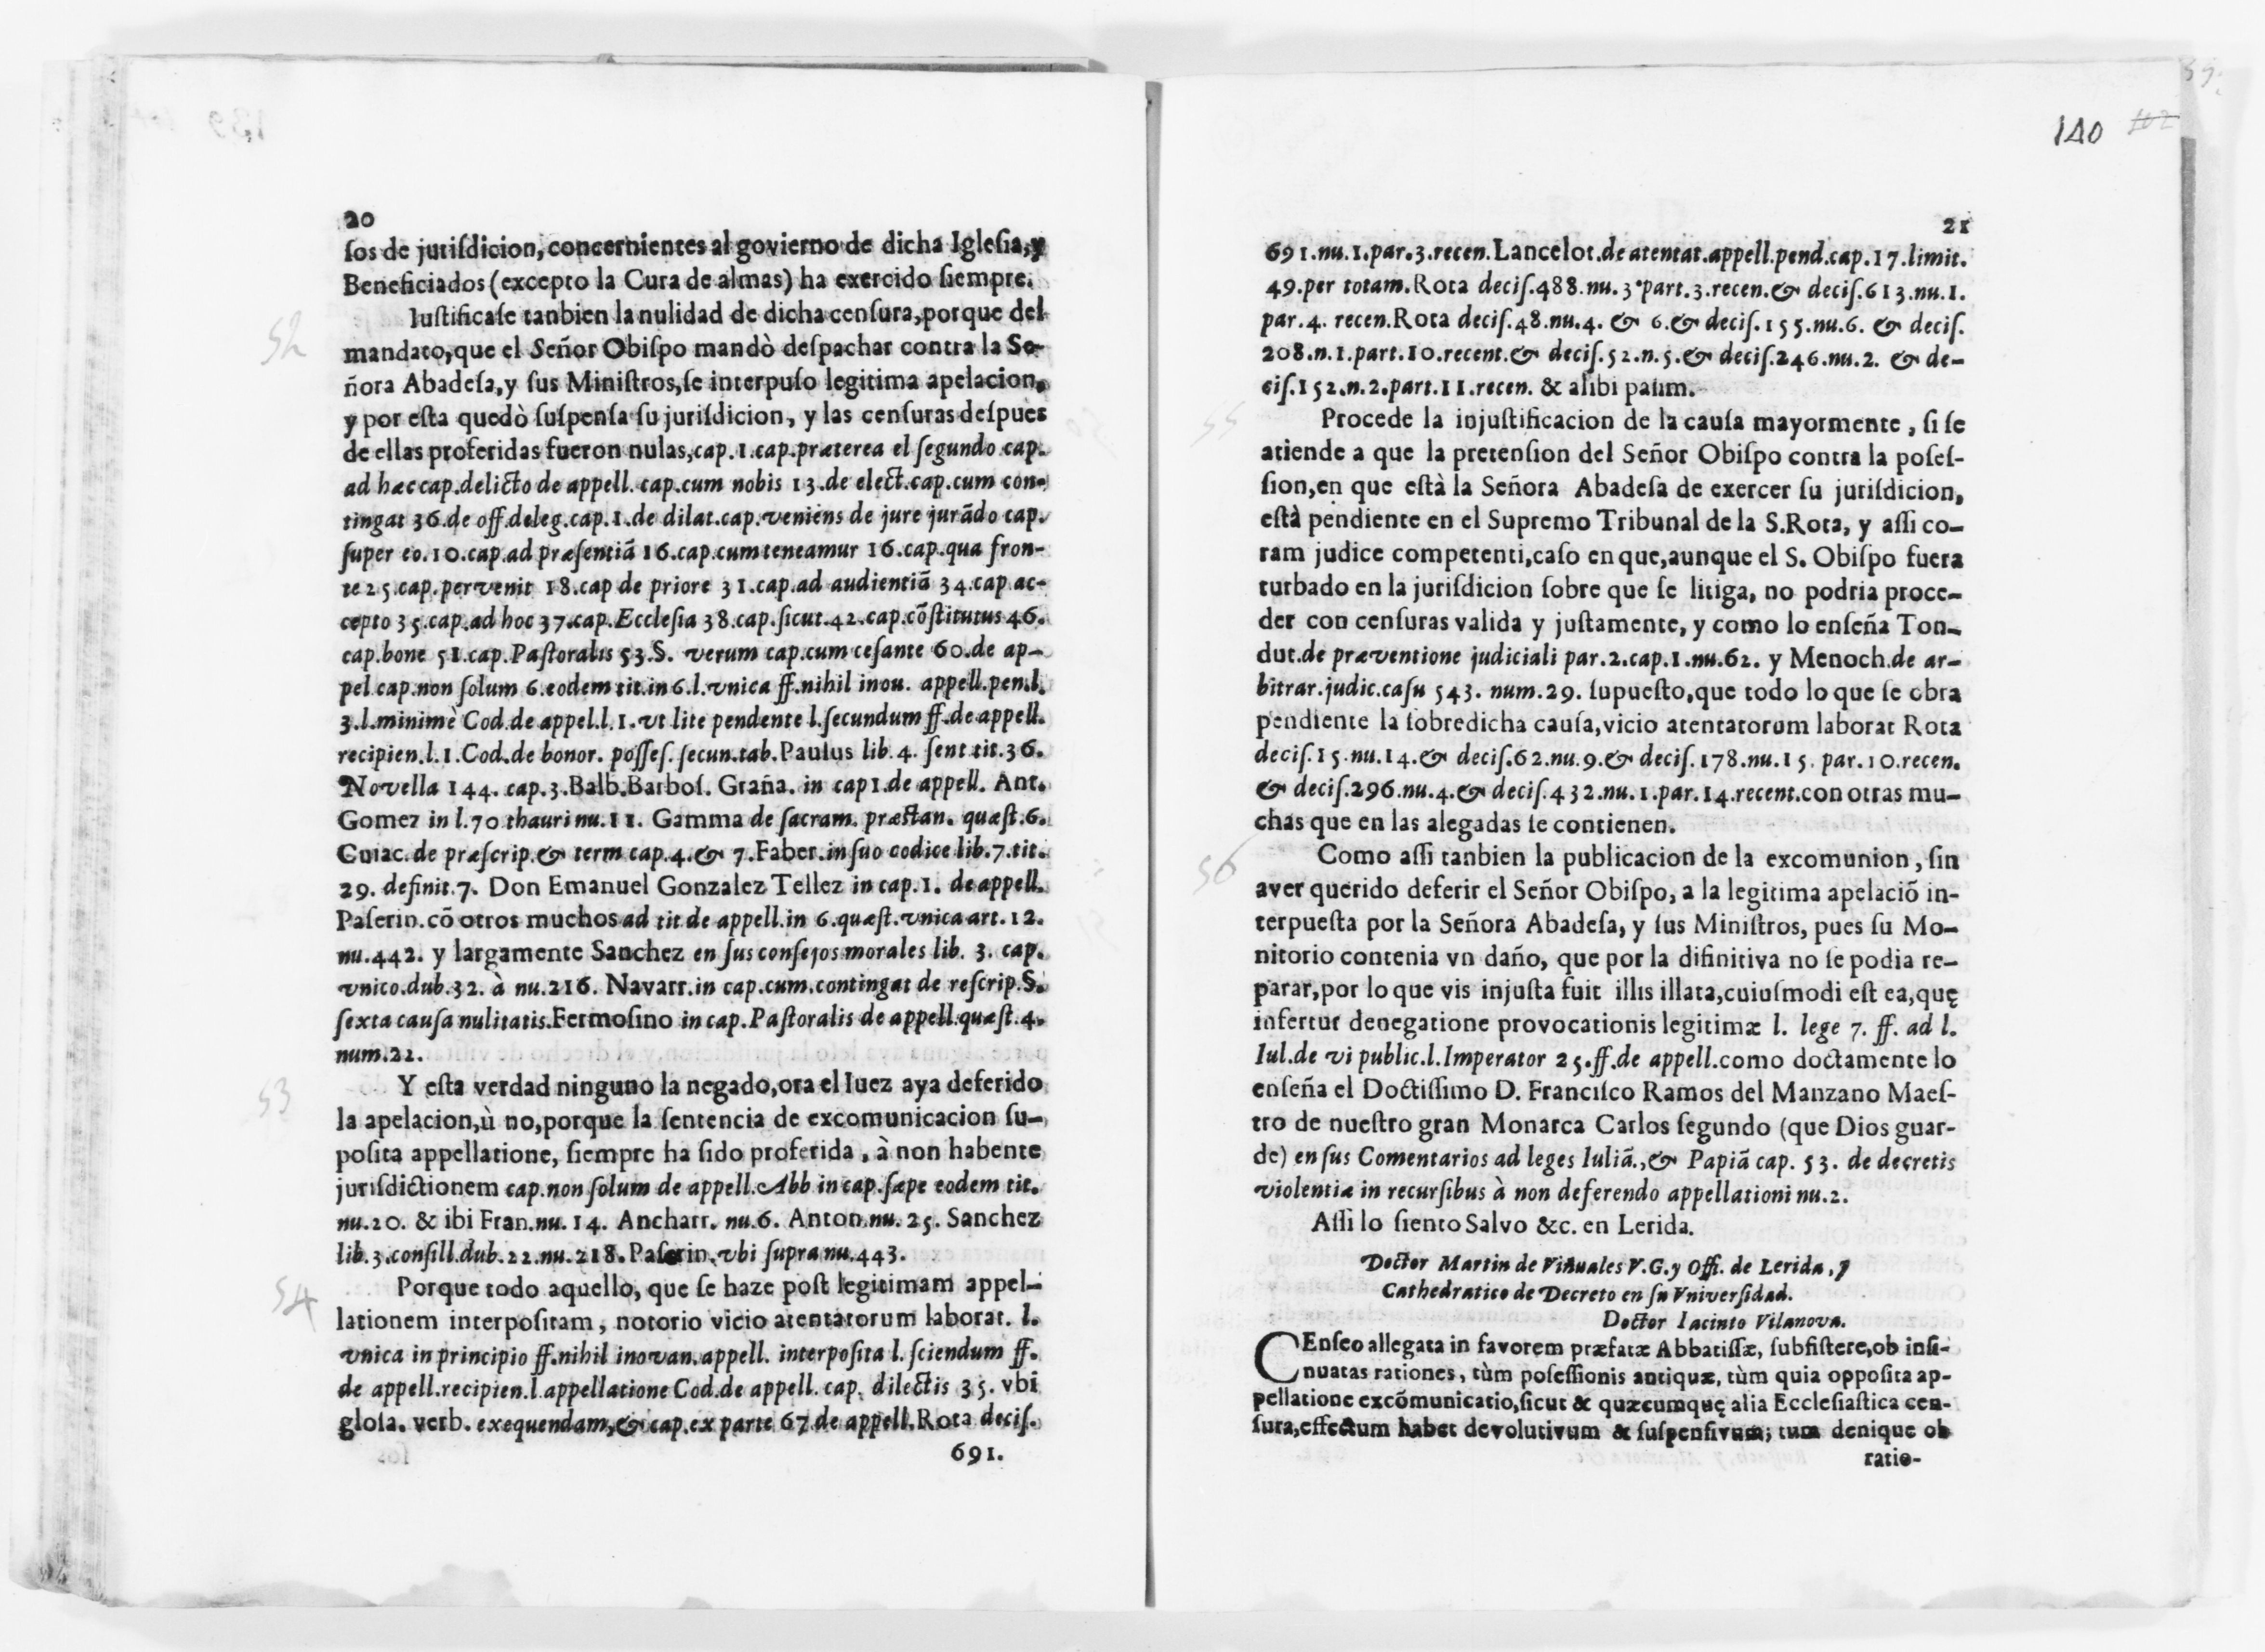 20
sos de jurisdicion, concernientes al govierno de dicha Iglesia, y
Beneficiados (excepto la Cura de almas) ha exercido siempre.
52
Iustificase tanbien la nulidad de dicha censura, porque del
mandato, que el Señor Obispo mandò despachar contra la Se-
ñora Abadesa, y sus Ministros, se interpuso legitima apelacion,
y por esta quedò suspensa su jurisdicion, y las censuras despues
de ellas proferidas fueron nulas, cap. 1. cap. præterea el segundo cap.
ad hæc cap. delicto de appell. cap. cum nobis 13. de elect. cap. cum con-
tingat 36. de off. deleg. cap. 1. de dilat. cap. veniens de jure jurãdo cap.
super eo. 10. cap. ad præsentiã 16. cap. cum teneamur 16. cap. qua fron-
te 25. cap. pervenit 18. cap de priore 31. cap. ad audientiã 34. cap. ac-
cepto 35. cap. ad hoc 37. cap. Ecclesia 38. cap. sicut. 42. cap. cõstitutus 46.
cap. bone 51. cap. Pastoralis 53. §. verum cap. cum cesante 60. de ap-
pel. cap. non solum 6. eodem tit. in 6. l. vnica ff. nihil inou. appell. pen. l.
3. l. minimè Cod. de appel. l. 1. vt lite pendente l. secundum ff. de appell.
recipien. l. 1. Cod. de bonor. posses. secun. tab. Paulus lib. 4. sent. tit. 36.
Novella 144. cap. 3. Balb. Barbos. Graña. in cap 1. de appell. Ant.
Gomez in l. 70 thauri nu. 11. Gamma de sacram. præstan. quæst. 6.
Cuiac. de præscrip. & term cap. 4. & 7. Faber. in suo codice lib. 7. tit.
29. definit. 7. Don Emanuel Gonzalez Tellez in cap. 1. de appell.
Paserin. cõ otros muchos ad tit. de appell. in 6. quæst. vnica art. 12.
nu. 442. y largamente Sanchez en sus consejos morales lib. 3. cap.
vnico. dub. 32. à nu. 216. Navarr. in cap. cum. contingat de rescrip. §.
sexta causa nulitatis. Fermosino in cap. Pastoralis de appell. quæst. 4.
num. 22.
53
Y esta verdad ninguno la negado, ora el Iuez aya deferido
la apelacion, ù no, porque la sentencia de excomunicacion su-
posita appellatione, siempre ha sido proferida, à non habente
jurisdictionem cap. non solum de appell. Abb in cap. sæpe eodem tit.
nu. 20. & ibi Fran. nu. 14. Ancharr. nu. 6. Anton. nu. 25. Sanchez
lib. 3. consill. dub. 22. nu. 218. Paserin. vbi supra nu. 443.
54
Porque todo aquello, que se haze post legitimam appel-
lationem interpositam, notorio vicio atentatorum laborat. l.
vnica in principio ff. nihil inovan. appell. interposita l. sciendum ff.
de appell. recipien. l. appellatione Cod. de appell. cap. dilectis 35. vbi
glosa. verb. exequendam, & cap. ex parte 67 de appell. Rota decis.
691.
140 102
21
691. nu. 1. par. 3. recen. Lancelot. de atentat. appell. pend. cap. 17. limit.
49. per totam. Rota decis. 488. nu. 3. part. 3. recen. & decis. 613. nu. 1.
par. 4. recen. Rota decis. 48. nu. 4. & 6. & decis. 155. nu. 6. & decis.
208. n. 1. part. 10. recent. & decis. 52. n. 5. & decis. 246. nu. 2. & de-
cis. 152. n. 2. part. 11. recen. & alibi pasim.
55
Procede la injustificacion de la causa mayormente, si se
atiende a que la pretension del Señor Obispo contra la poses-
sion, en que està la Señora Abadesa de exercer su jurisdicion,
està pendiente en el Supremo Tribunal de la S. Rota, y assi co-
ram judice competenti, caso en que, aunque el S. Obispo fuera
turbado en la jurisdicion sobre que se litiga, no podria proce-
der con censuras valida y justamente, y como lo enseña Ton-
dut. de præventione judiciali par. 2. cap. 1. nu. 62. y Menoch. de ar-
bitrar. judic. casu 543. num. 29. supuesto, que todo lo que se obra
pendiente la sobredicha causa, vicio atentatorum laborat Rota
decis. 15. nu. 14. & decis. 62. nu. 9. & decis. 178. nu. 15. par. 10. recen.
& decis. 296. nu. 4. & decis. 432. nu. 1. par. 14. recent. con otras mu-
chas que en las alegadas se contienen.
56
Como assi tanbien la publicacion de la excomunion, sin
aver querido deferir el Señor Obispo, a la legitima apelaciõ in-
terpuesta por la Señora Abadesa, y sus Ministros, pues su Mo-
nitorio contenia vn daño, que por la difinitiva no se podia re-
parar, por lo que vis injusta fuit illis illata, cuiusmodi est ea, quę
infertur denegatione provocationis legitimæ l. lege 7. ff. ad l.
Iul. de vi public. l. Imperator 25. ff. de appell. como doctamente lo
enseña el Doctissimo D. Francisco Ramos del Manzano Maes-
tro de nuestro gran Monarca Carlos segundo (que Dios guar-
de) en sus Comentarios ad leges Iuliã., & Papiã cap. 53. de decretis
violentiæ in recursibus à non deferendo appellationi nu. 2.
Assi lo siento Salvo &c. en Lerida.
Doctor Martin de Viñuales V. G. y Offi. de Lerida, y
Cathedratico de Decreto en su Vniversidad.
Doctor Iacinto Vilanova.
CEnseo allegata in favorem præfatæ Abbatissæ, subsistere, ob insi-
nuatas rationes, tùm posessionis antiquæ, tùm quia opposita ap-
pellatione excõmunicatio, sicut & quæcumquę alia Ecclesiastica cen-
sura, effectum habet devolutivum & suspensivum; tum denique ob
ratio-